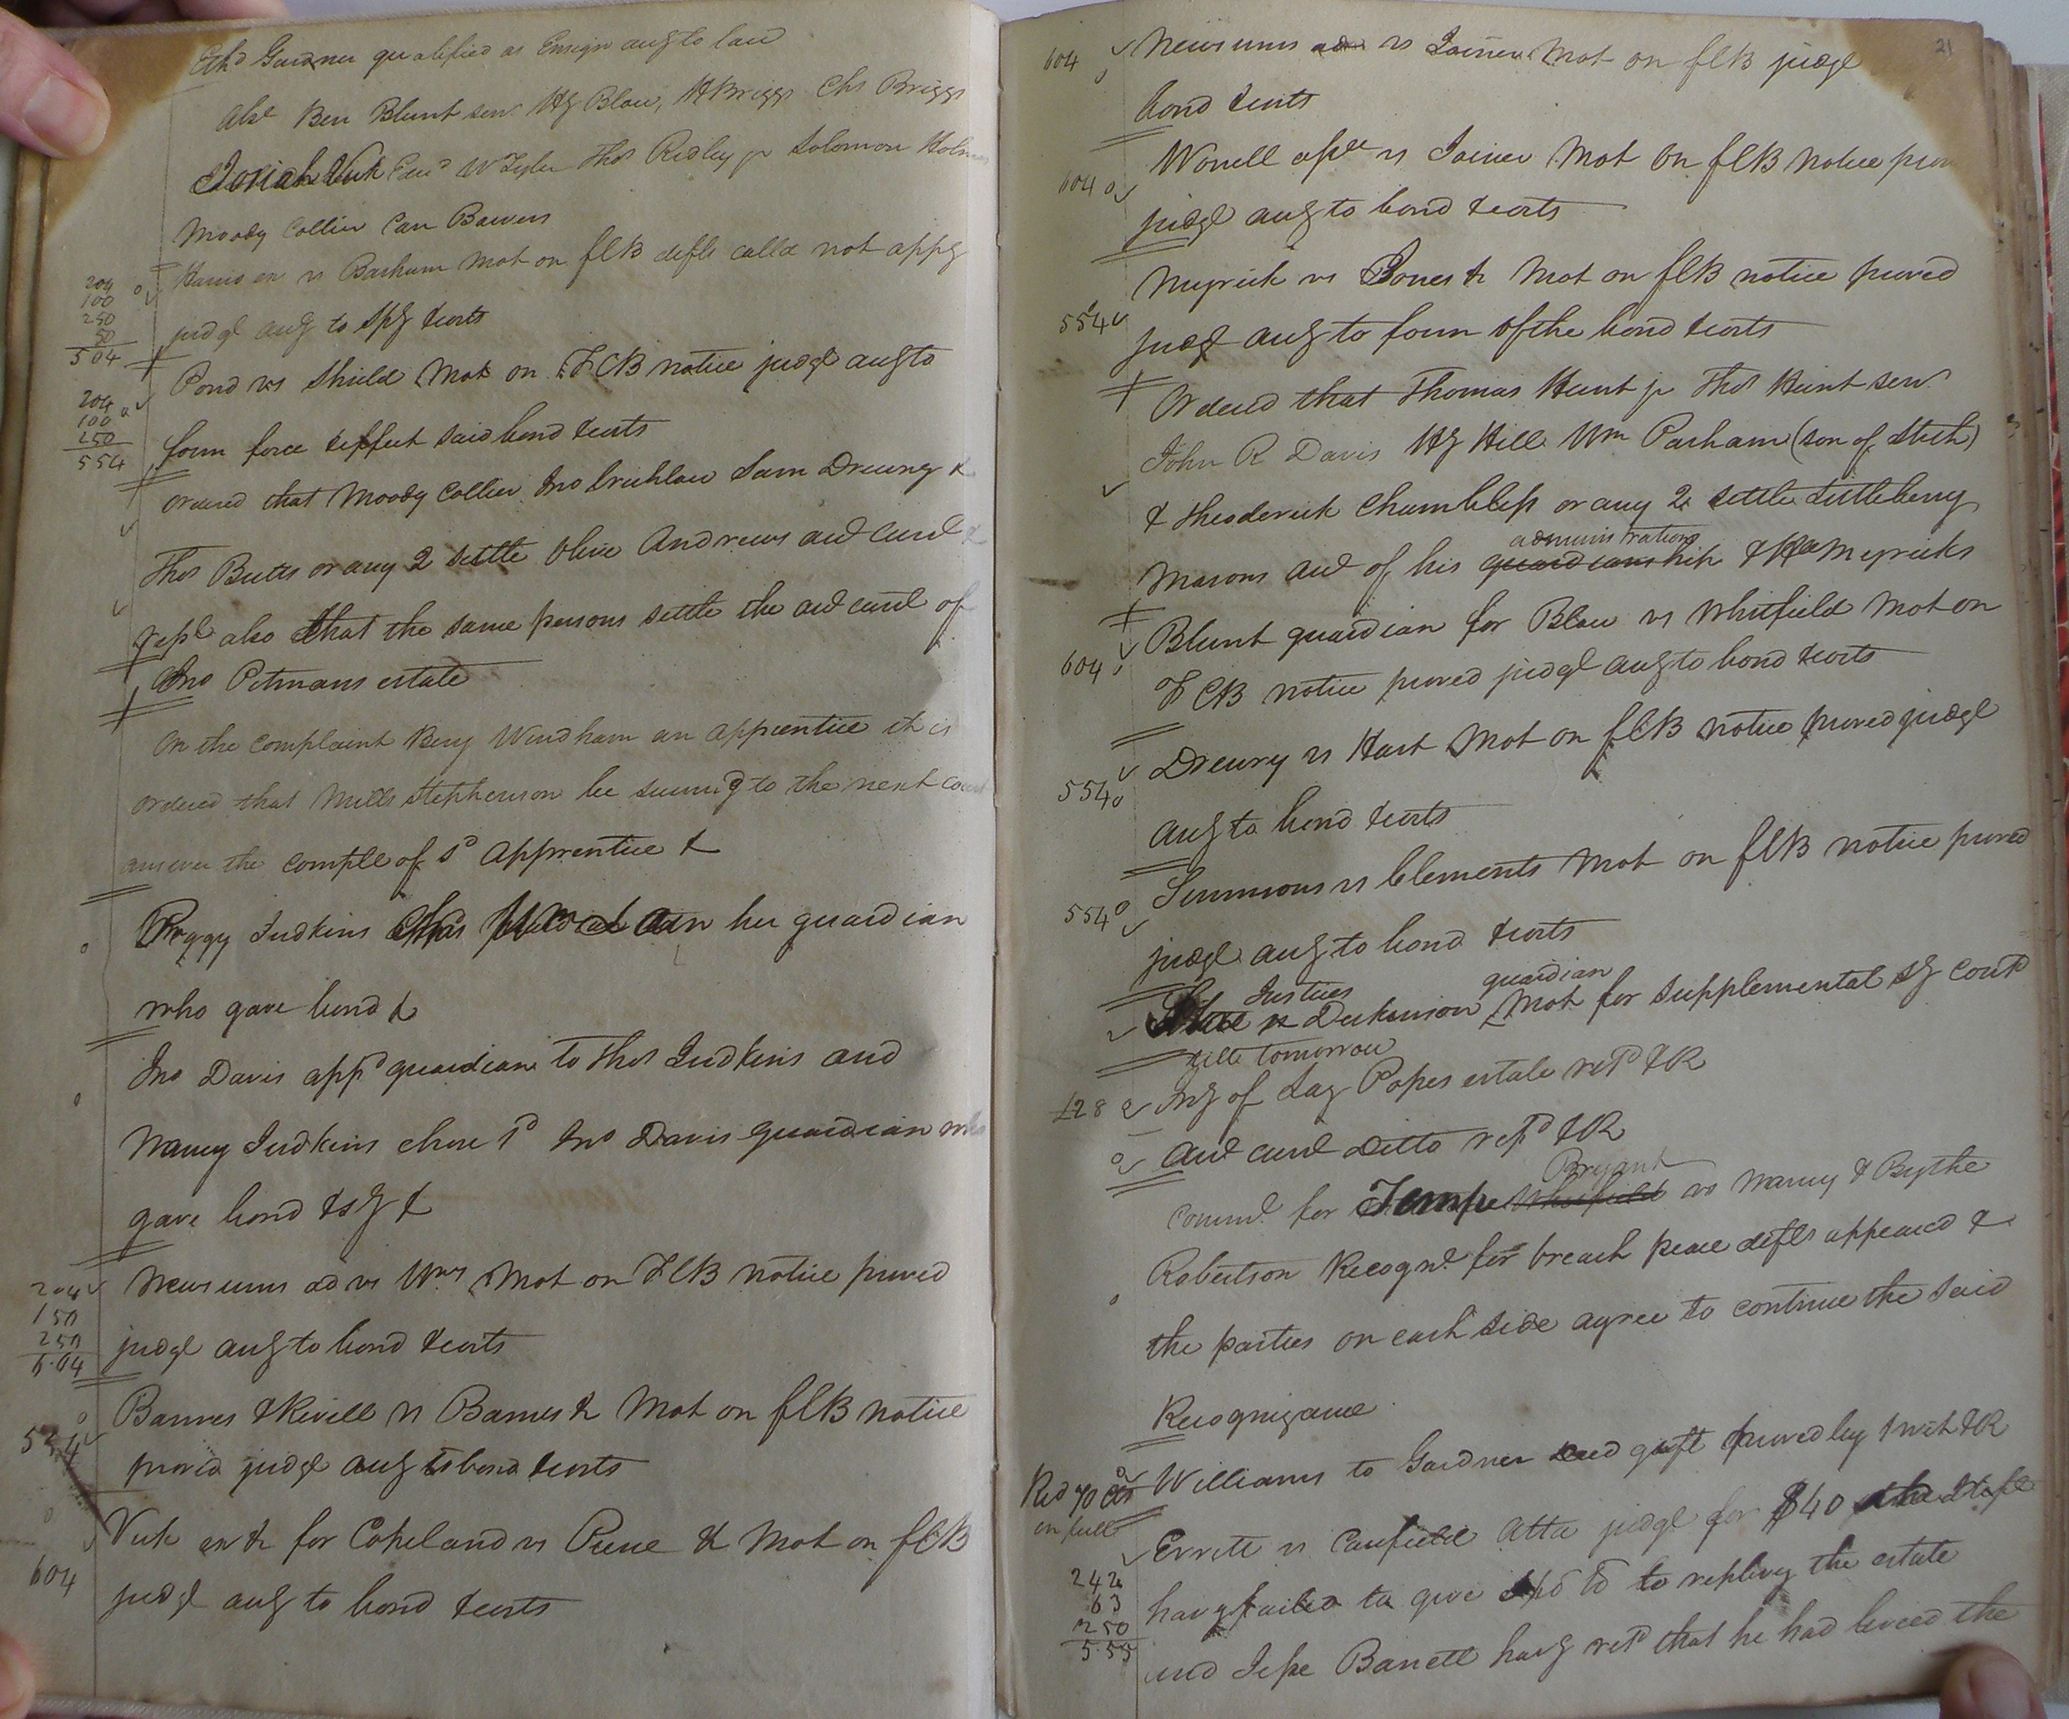 Gardner qualified as Ensign aug to law
Abst Ben Blunt senr Hy Blow, H Briggs Chs Briggs
Josiah Vick W Tyler Thos Ridley jr Solomon Holmes
Moody Collier Carr Bowers
Harris vs Barham Mot on fCB defts calld not appg
judgt aug to spy & costs
204
100
250
50
504
Pond vs Shield Mot on FCB notice judgt aug to
form force & effect said bond & costs
204
100
250
554
Ordered that Moody Collier Jno Crichlow Sam Drewry &
Thos Butts or any 2 settle Olive Andrews act curt &
rept also that the same persons settle the act curt of
Jno Pitmans estate
On the complaint Berry Windham an apprentice it is
ordered that Mills Stephenson be summd to the next court
answer the complt of sd Apprentice &
Peggy Judkins her guardian
who gave bond &
Jno Davis appd guardian to Thos Judkins and
Nancy Judkins chose sd Jno Davis guardian who
gave bond & sy &
Newsums ad vs Wms Mot on FCB notice proved
judgt aug to bond & costs
204
150
250
6.04
Barnes & Revell vs Barnes & Mot on fCB notice
proved judgt aug to bond & costs
Vick ex & for Copeland vs & Mot on fCB
judgt aug to bond & costs
604
21
604 Newsums ad vs Joiner Mot on fCB judgt
bond & costs
Worrell vs Joiner Mot on fCB notice prov
604
judgt aug to bond & costs
Myrick vs Jones & Mot on fCB notice proved
554
judgt aug to form of the bond & costs
Ordered that Thomas Hunt jr Thos Hunt senr
John R Davis Hy Hill Wm Parham (son of Steth)
& Theoderick Chambless or any 2 settle Littleberry
administration
Masons act of his guardianship & Myricks
Blunt guardian for Blow vs Whitfield Mot on
604
FCB notice proved judgt aug to bond & costs
Drewry vs Hart Mot on fCB notice proved judgt
554
aug to bond & costs
Simmons vs Clements Mot on fCB notice proved
554
judgt aug to bond & costs
Justices guardian
vs Dickinson Mot for supplemental sy contd
till tomorrow
128 Iny of Lazy Popes estate retd & R
act curt Ditto retd & R
Bryant
Commt for Tempe Whitfield vs Nancy & Bythe
Robertson Recognt for breach peace defts appeared &
the parties on each side agree to continue the said
Recognizance
Williams to Gardner deed gift proved by 1 wit & R
Recd 70 cts
in full
Errett vs Caufield Atta judgt for $40
havg failed to give to replevy the estate
242
63
250
5.55
and Jesse Barrett havg retd that he had levied the